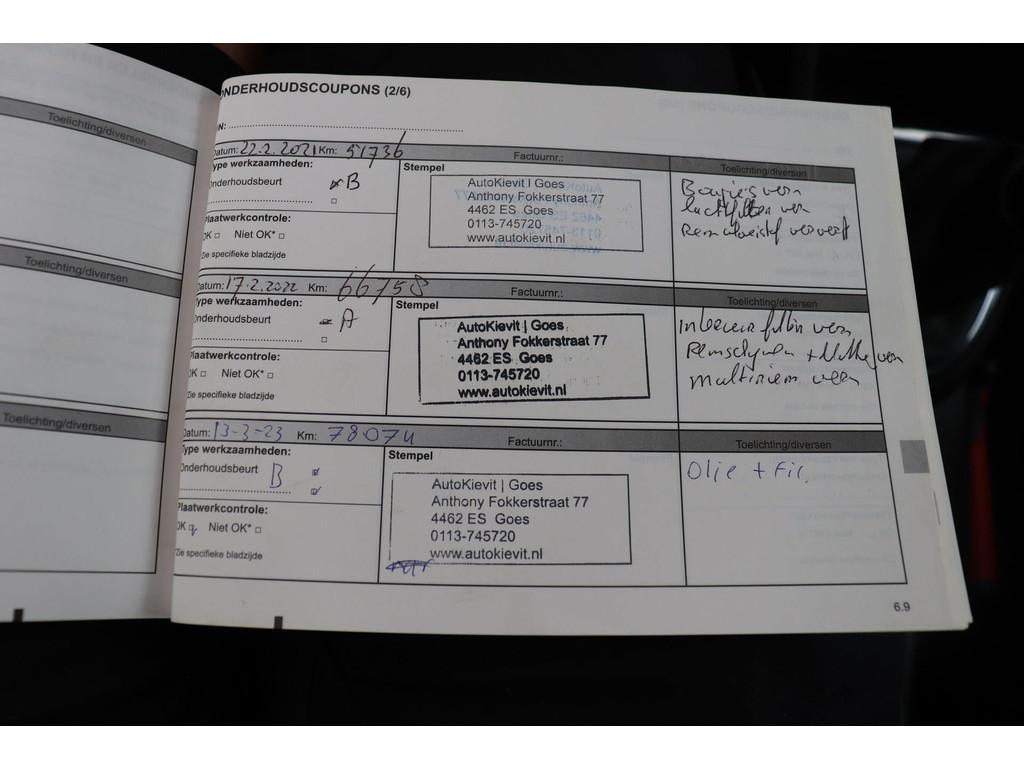 Toelichting/diversen
Toelichting/diversen
Toelichting/diversen
ONDERHOUDSCOUPONS (2/6)
N:
Datum: 22.2.2021 Km: 51736 Factuurnr.: Toelichting/diversen
ype werkzaamheden:
Onderhoudsbeurt B
Plaatwerkcontrole:
OK Niet OK*
Zie specifieke bladzijde
Stempel
AutoKievit | Goes
Anthony Fokkerstraat 77
4462 ES Goes
0113-745720
www.autokievit.nl
Bougies ver
luchtfilter ver
Remvloeistof ververst
Datum: 17.2.2022 Km: 66758 Factuurnr.: Toelichting/diversen
Type werkzaamheden:
Onderhoudsbeurt A
Plaatwerkcontrole:
OK Niet OK*
Zie specifieke bladzijde
Stempel
AutoKievit | Goes
Anthony Fokkerstraat 77
4462 ES Goes
0113-745720
www.autokievit.nl
Interieurfilter vern
Remschijven + ver
multiriem
Datum: 13-3-23 Km: 78074 Factuurnr.: Toelichting/diversen
Type werkzaamheden:
Onderhoudsbeurt B
Plaatwerkcontrole:
OK Niet OK*
Zie specifieke bladzijde
Stempel
AutoKievit | Goes
Anthony Fokkerstraat 77
4462 ES Goes
0113-745720
www.autokievit.nl
Olie + Fil.
6.9